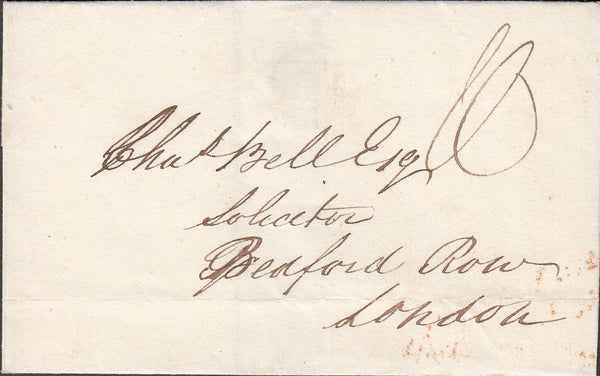 10
Chas Bell Esq
Solicitor
Bedford Row
London